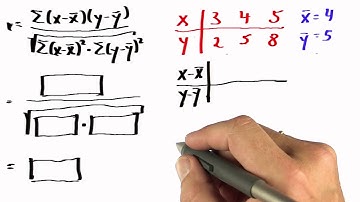 r = Σ(x-x̄)(y-ȳ) / √Σ(x-x̄)²·Σ(y-ȳ)²
= □ / √□·□
= □
x | 3 4 5
y | 2 5 8
x̄ = 4
ȳ = 5
x-x̄
y-ȳ